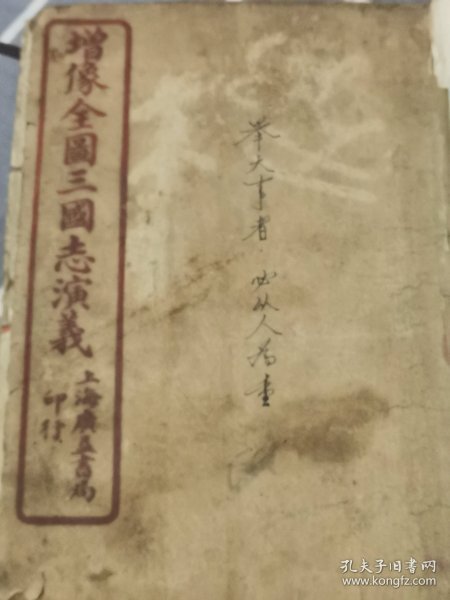 增像全圖三國志演義
上海廣益書局
印行
举大事者，必从人为重
孔夫子旧书网
www.kongfz.com